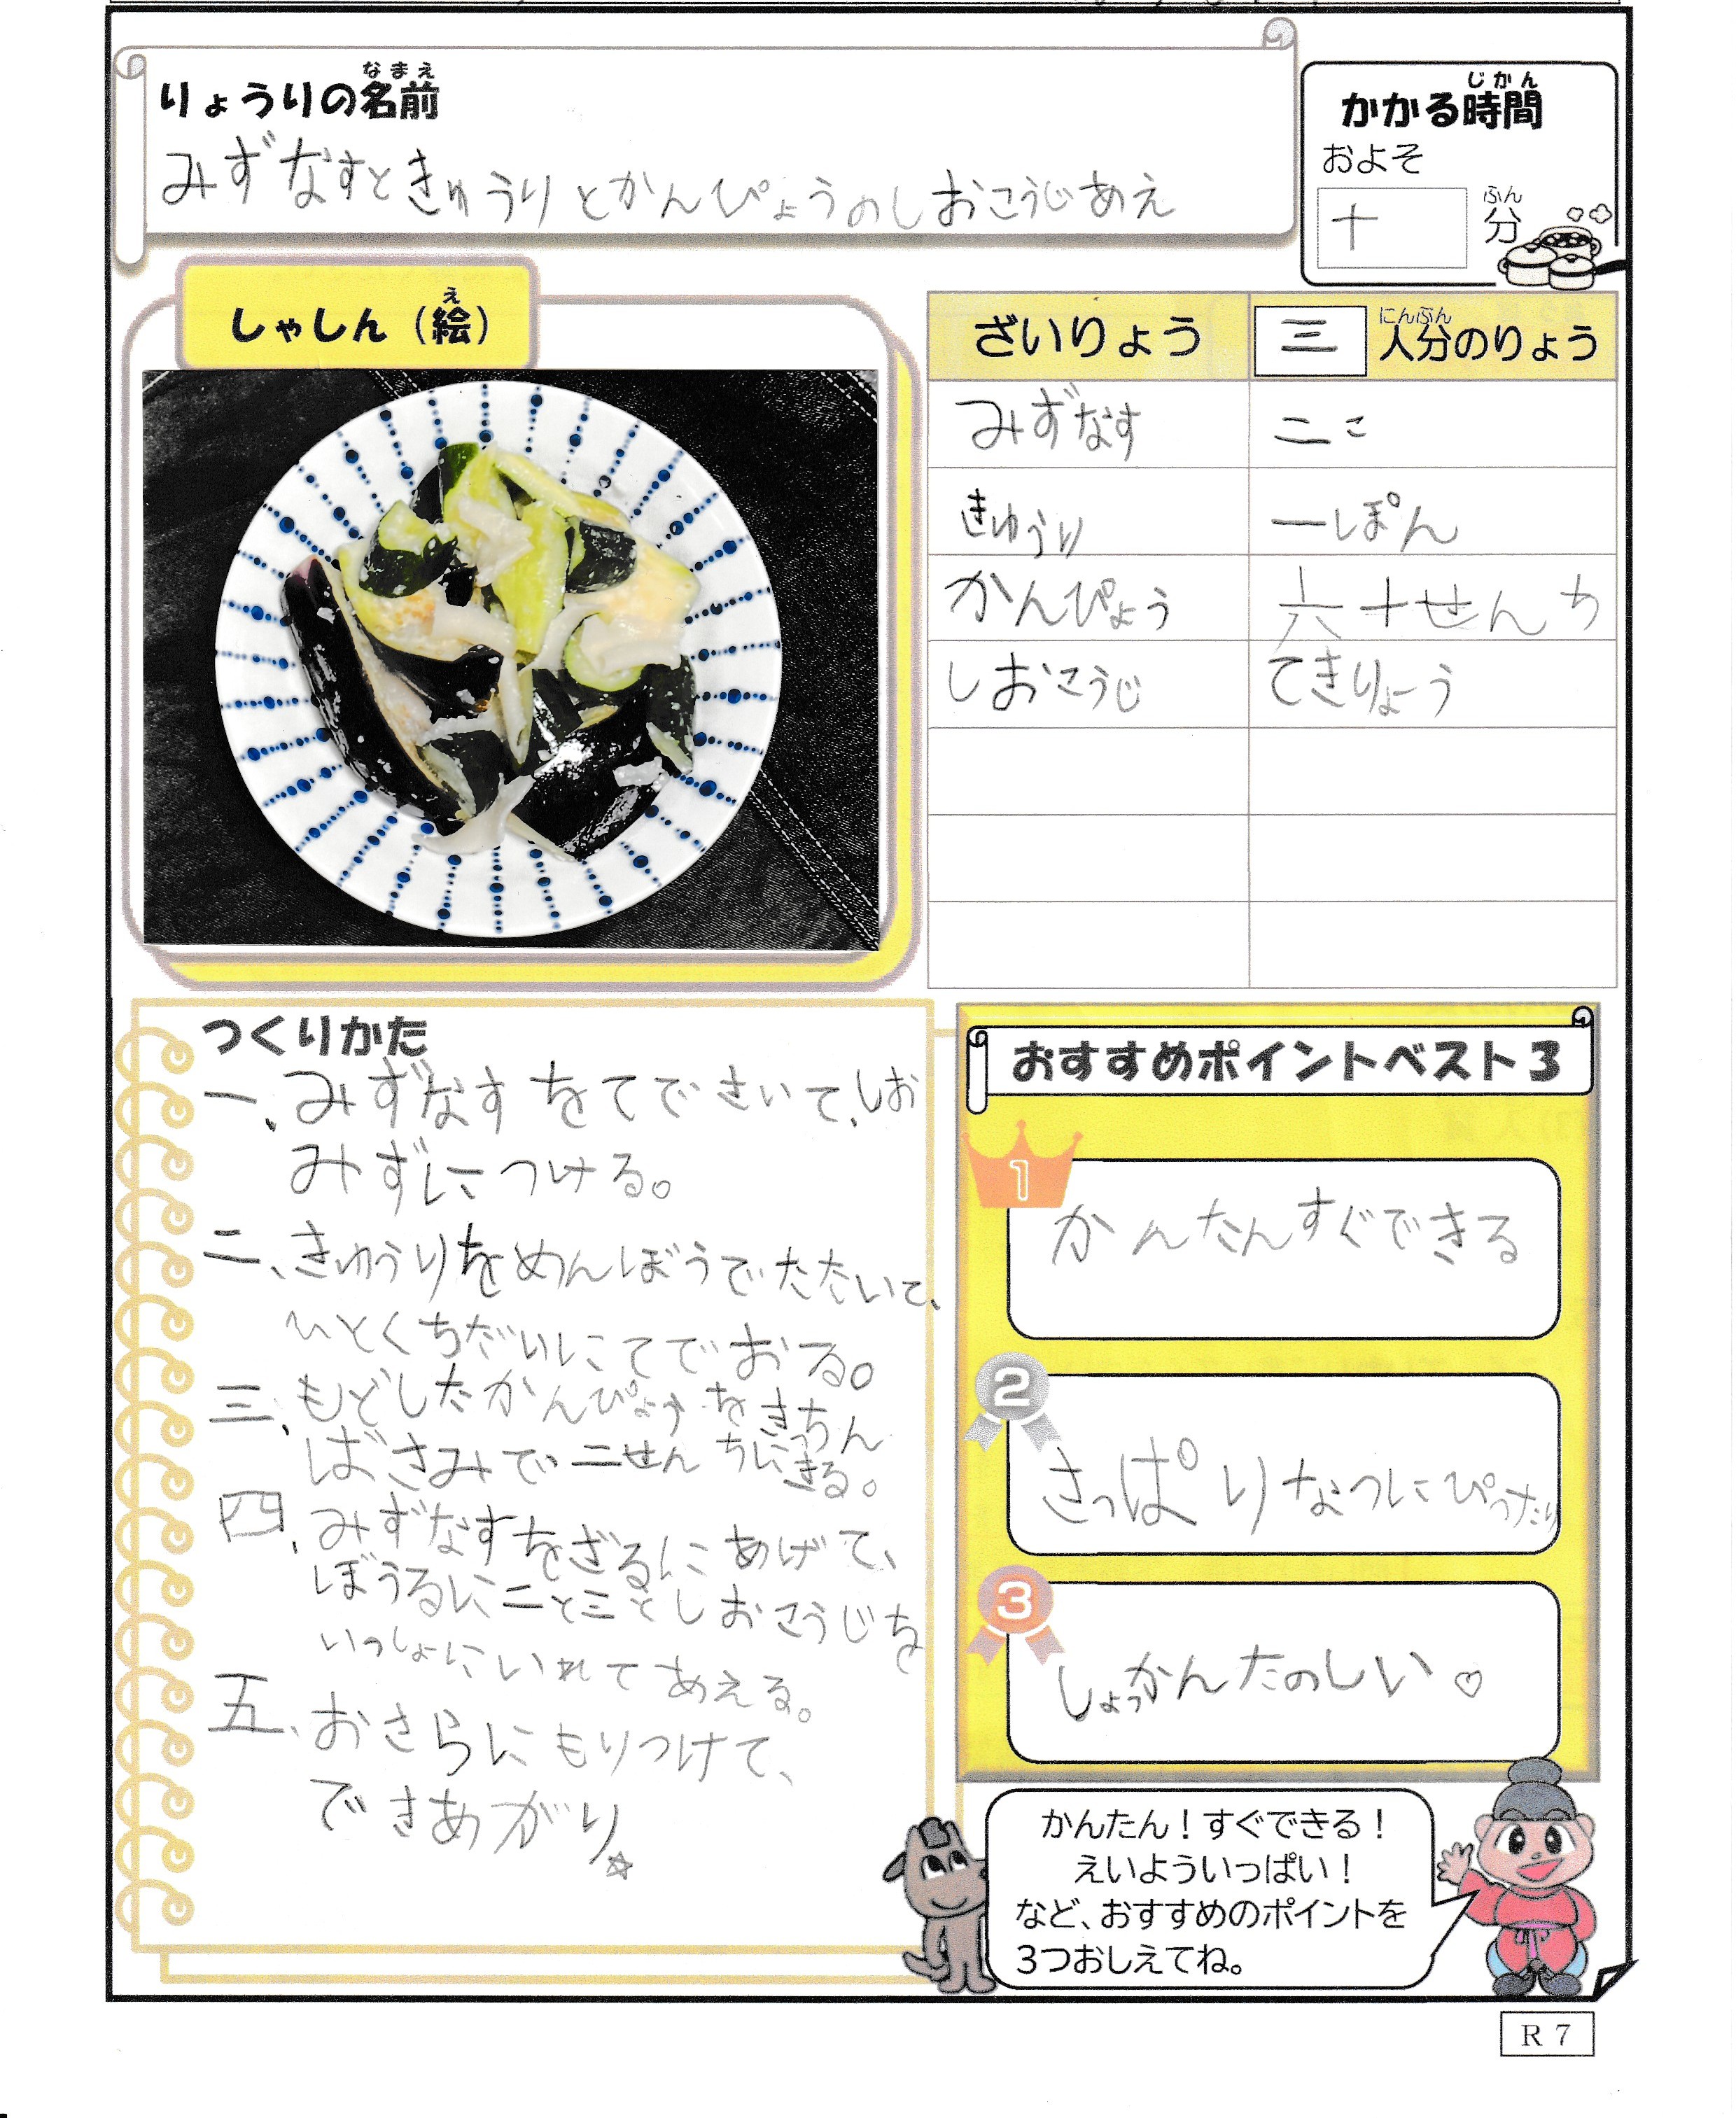 なまえ
りょうりの名前
みずなすときゅうりとかんぴょうのしおこうじあえ
じかん
かかる時間
およそ
十
ふん
分
え
しゃしん（絵）
ざいりょう
三
にんぶん
人分のりょう
みずなす 二こ
きゅうり 一ぽん
かんぴょう 六十せんち
しおこうじ てきりょう
つくりかた
一、みずなすをてでさいて、しお
みずにつける。
二、きゅうりをめんぼうでたたいて、
ひとくちだいにてでおる。
三、もどしたかんぴょうをきっちん
ばさみで二せんちにきる。
四、みずなすをざるにあげて、
ぼうるに二と三としおこうじを
いっしょにいれてあえる。
五、おさらにもりつけて、
できあがり☆
おすすめポイントベスト3
1
かんたんすぐできる
2
さっぱりなつにぴったり
3
しょっかんたのしい♡
かんたん！すぐできる！
えいよういっぱい！
など、おすすめのポイントを
3つおしえてね。
R7